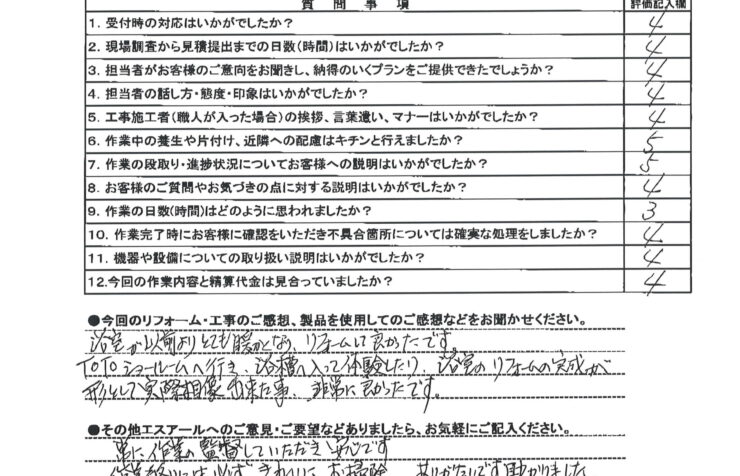 質問事項 評価記入欄
1. 受付時の対応はいかがでしたか? 4
2. 現場調査から見積提出までの日数(時間)はいかがでしたか? 4
3. 担当者がお客様のご意向をお聞きし、納得のいくプランをご提供できたでしょうか? 4
4. 担当者の話し方・態度・印象はいかがでしたか? 4
5. 工事施工者(職人が入った場合)の挨拶、言葉遣い、マナーはいかがでしたか? 4
6. 作業中の養生や片付け、近隣への配慮はキチンと行えましたか? 5
7. 作業の段取り・進捗状況についてお客様への説明はいかがでしたか? 5
8. お客様のご質問やお気づきの点に対する説明はいかがでしたか? 4
9. 作業の日数(時間)はどのように思われましたか? 3
10. 作業完了時にお客様に確認をいただき不具合箇所については確実な処理をしましたか? 4
11. 機器や設備についての取り扱い説明はいかがでしたか? 4
12.今回の作業内容と精算代金は見合っていましたか? 4
●今回のリフォーム・工事のご感想、製品を使用してのご感想などをお聞かせください。
浴室が以前よりとても暖かくなり、リフォームして良かったです。
TOTOショールームへ行き、浴槽へ入って体験したり、浴室のリフォームの完成が
形として実際想像出来た事、非常に良かったです。
●その他エスアールへのご意見・ご要望などありましたら、お気軽にご記入ください。
常に作業の監督していただき安心です
作業終りには必ずきれいにお掃除 ありがたいです助かりました